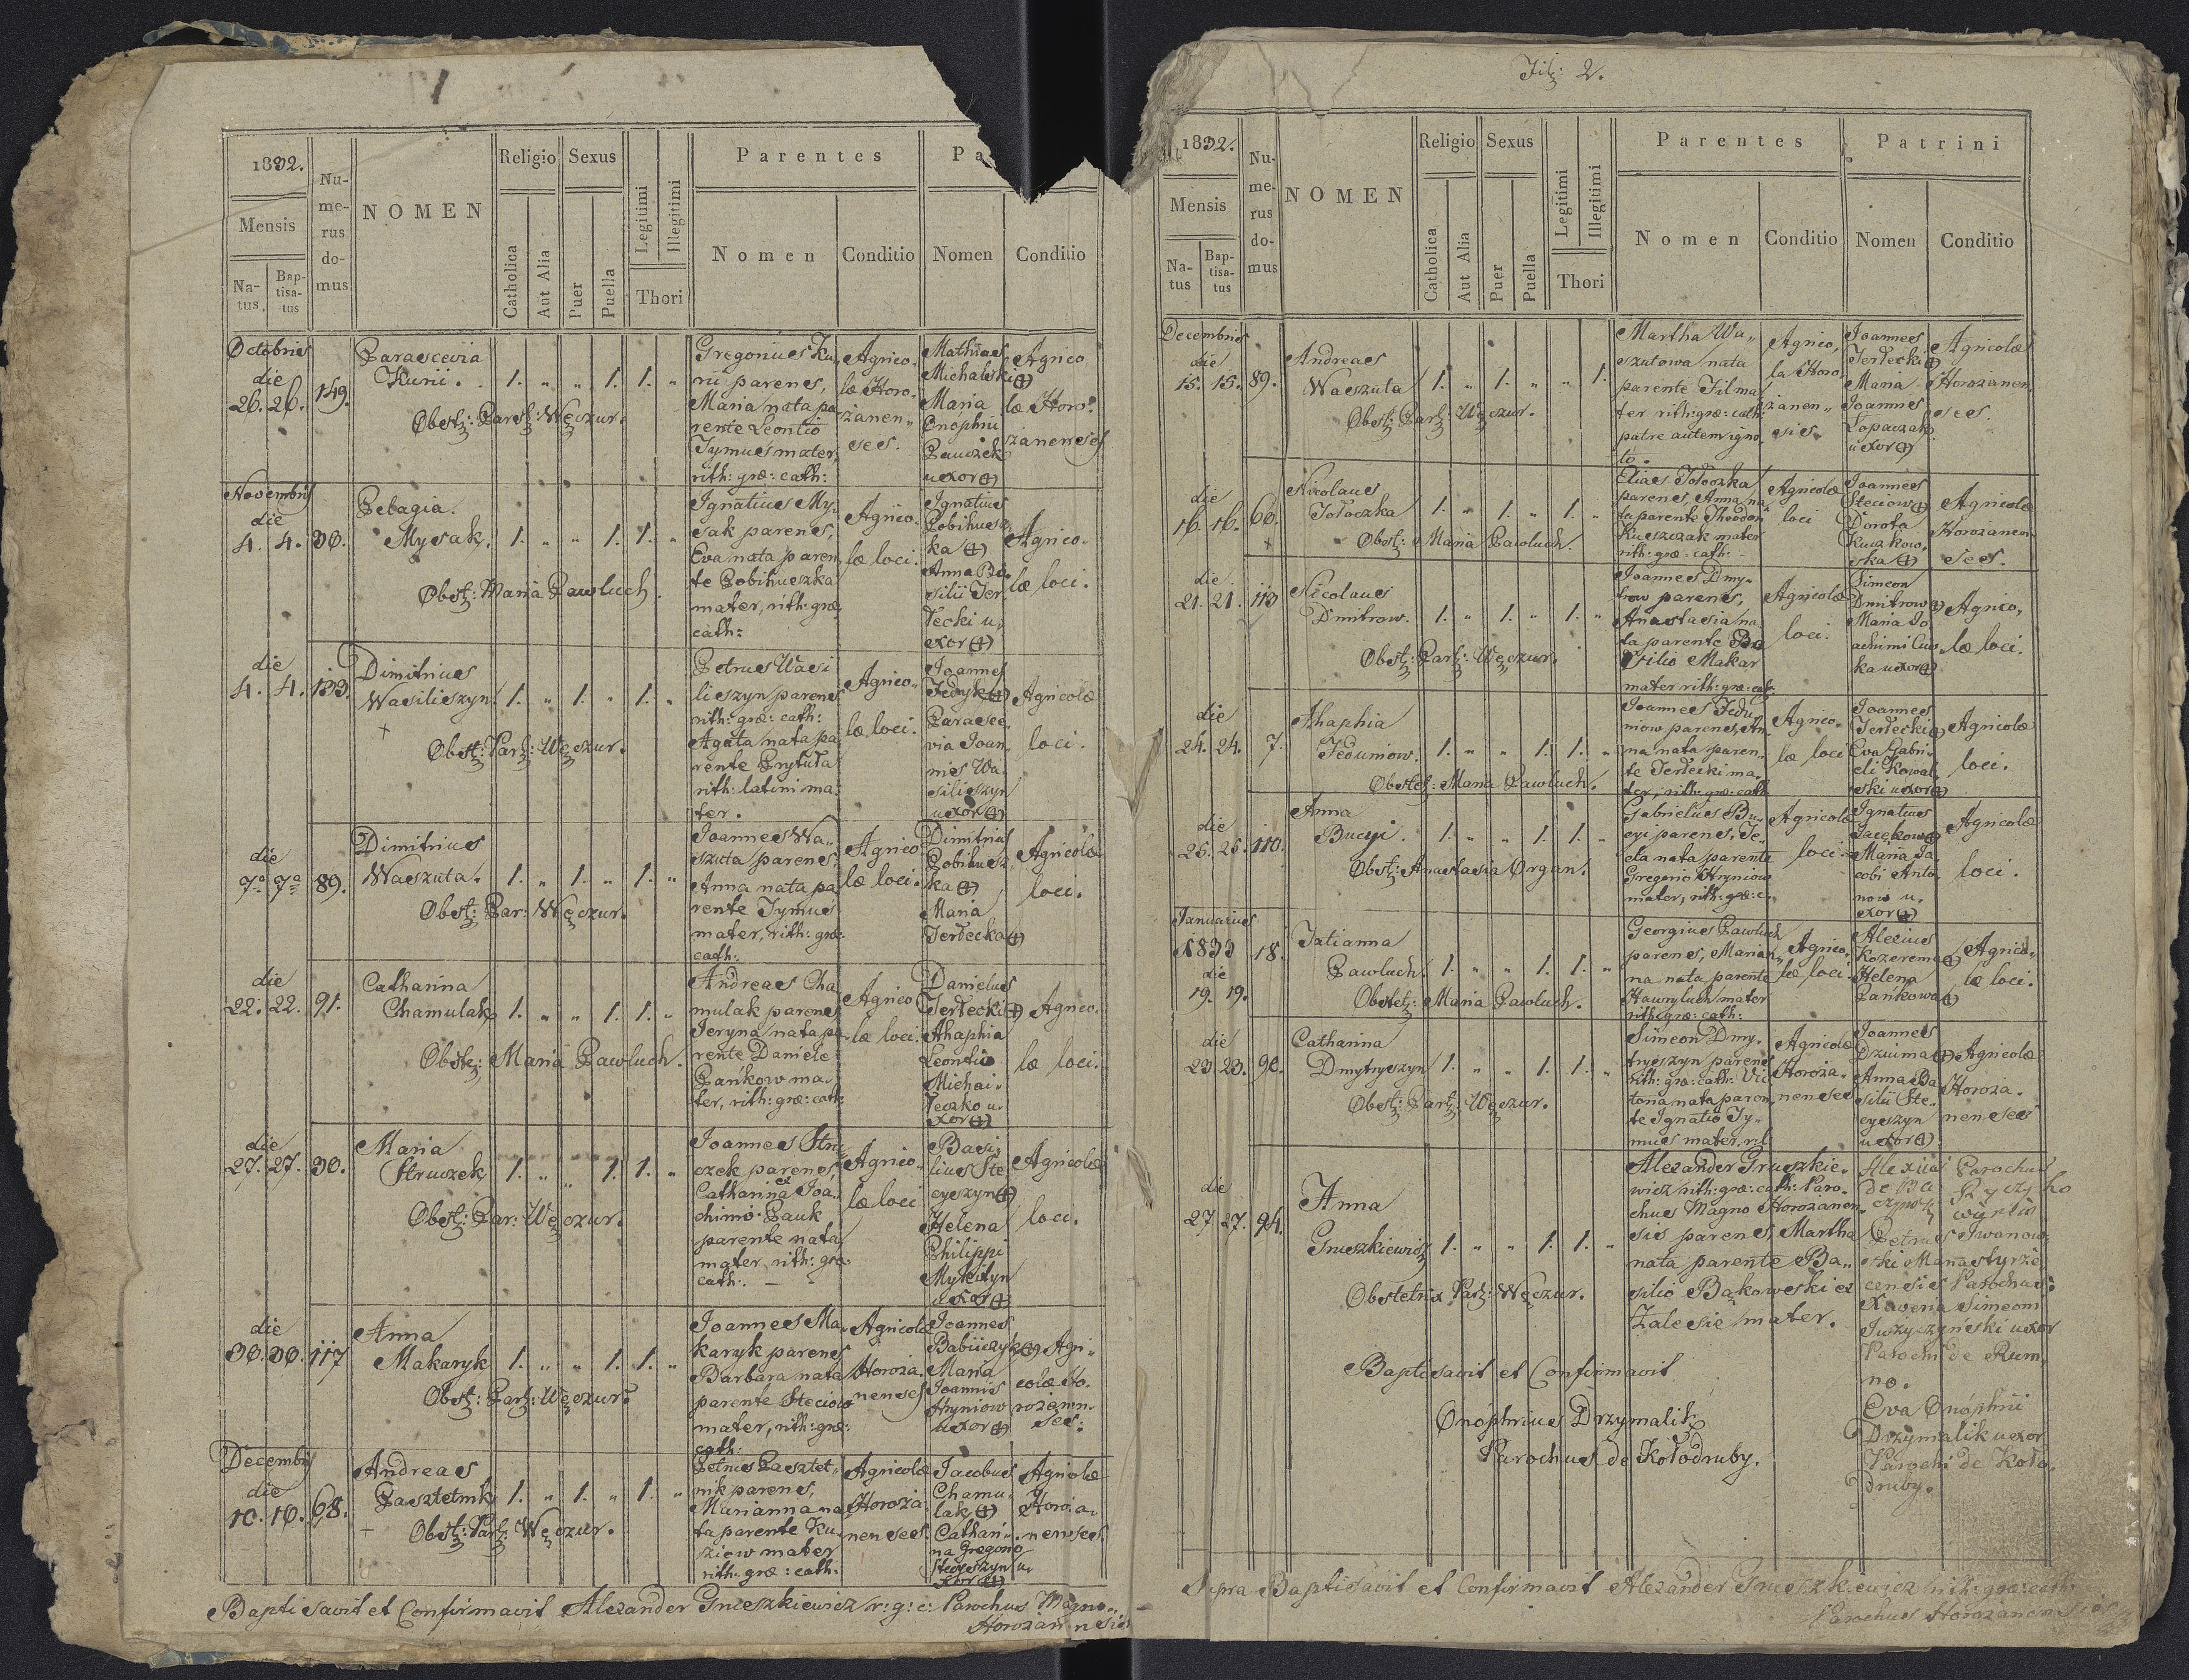 1832.
Mensis
Na-
tus.
Bap-
tisa-
tus
Nu-
me-
rus
do-
mus
NOMEN
Religio
Catholica
Aut Alia
Sexus
Puer
Puella
Legitimi
Illegitimi
Thori
Parentes
Nomen
Conditio
Pa
Nomen
Conditio
Octobris
die
26. 26. 149.
Parascevia
Kurii.
1. „ „ 1. 1. „
Obst: Parasc: Węczur.
Gregorius Ku„
rii parens,
Maria nata pa
rente Leontio
Tymus mater,
rith: græ: cath:
Agrico„
læ Horo„
żanen„
ses.
Mathias
Michalski (+)
Maria
Onophrii
Pauczek
uxor (+)
Agrico
læ Horo„
żanenses
Novembris
die
4. 4. 30.
Pelagia.
Mysak.
1. „ „ 1. 1. „
Obst: Maria Pawluch.
Ignatius My„
sak parens,
Eva nata paren
te Pobihuszka
mater, rith: græ:
cath:
Agrico„
læ loci.
Ignatius
Pobihusz„
ka (+)
Anna Ba„
silii Ter„
lecki u„
xor (+)
Agrico„
læ loci.
die
4. 4. 133.
Dimitrius
Wasiliszyn.
1. „ 1. „ 1. „
+
Obst: Par: Węczur.
Petrus Wasi
liszyn parens
rith: græ: cath:
Agata nata pa
rente Prytuła
rith: latini ma„
ter.
Agrico„
læ loci.
Joannes
Fedyk (+)
Parasce„
via Joan„
nis Wa„
siliszyn
uxor (+)
Agricolæ
loci.
die
7ª 7ª 89.
Dimitrius
Waszuta.
1. „ 1. „ 1. „
Obst: Par: Węczur.
Joannes Wa„
szuta parens,
Anna nata pa
rente Tymus
mater, rith: græ:
cath:
Agrico
læ loci.
Dimitrius
Pobihusz„
ka (+)
Maria
Terlecka (+)
Agricolæ
loci.
die
22. 22. 91.
Catharina
Chamulak
1. „ „ 1. 1. „
Obste: Maria Pawluch.
Andreas Cha„
mulak parens
Jeryna nata pa„
rente Daniele
Pańkow ma„
ter, rith: græ: cath:
Agrico
læ loci.
Danielus
Terlecki (+)
Ahaphia
Leontio
Michai„
leczko u„
xor (+)
Agrico„
læ loci.
die
27. 27. 30.
Maria
Struczek
1. „ „ 1. 1. „
Obst: Par: Węczur.
Joannes Stru
czek parens,
Catharina ex Joa„
chimo Pauk
parente nata
mater, rith: græ:
cath:
Agrico„
læ loci
Basi„
lius Ste
cyszyn (+)
Helena
Philippi
Mykityn
uxor (+)
Agricolæ
loci.
die
30. 30. 117
Anna
Makaryk
1. „ „ 1. 1. „
Obst: Par: Węczur.
Joannes Ma„
karyk parens
Barbara nata
parente Steciow
mater, rith: græ:
cath:
Agricolæ
Horoża„
nenses
Joannes
Babiiczyk (+)
Maria
Joannis
Hryniow
uxor (+)
Agri„
colæ Ho„
rożanen„
ses:
Decembris
die
10. 10. 68.
Andreas
Pasztetnik
1. „ 1. „ 1. „
+
Obst: Par: Węczur.
Petrus Pasztet„
nik parens,
Marianna na„
ta parente Ku„
ziew mater
rith: græ: cath:
Agricolæ
Horoża„
nenses.
Jacobus
Chamu„
lak (+)
Cathari„
na Gregorio
Stecyszyn u„
xor (+)
Agricolæ
Horoża„
nenses.
Baptisavit et Confirmavit Alexander Gruszkiewicz r: g: c: Parochus Magno„
Horożannensis
Fil: 2.
1832.
Mensis
Na-
tus
Bap-
tisa-
tus
Nu-
me-
rus
do-
mus
NOMEN
Religio
Catholica
Aut Alia
Sexus
Puer
Puella
Legitimi
Illegitimi
Thori
Parentes
Nomen
Conditio
Patrini
Nomen
Conditio
Decembris
die
15. 15. 89.
Andreas
Waszuta
1. „ 1. „ „ 1.
Obst: Par: Węczur.
Martha Wa„
szutowa nata
parente Fil ma„
ter rith: græ: cath:
patre autem igno„
to.
Agrico„
la Horo„
żanen„
sis.
Joannes
Terlecki (+)
Maria
Joannes
Łopaczak
uxor (+)
Agricolæ
Horożanen„
ses.
die
16. 16. 60.
+
Nicolaus
Tołoczka
1. „ 1. „ 1. „
Obst: Maria Pawluch.
Elias Tołoczka
parens, Anna na
ta parente Theodori
Kuszczak mater
rith: græ: cath:
Agricolæ
loci
Joannes
Steciow (+)
Dorota
Kuczkow„
ska (+)
Agricolæ
Horożanen„
ses.
die
21. 21. 113
Nicolaus
Dmitrow.
1. „ 1. „ 1. „
Obst: Par: Węczur.
Joannes Dmy„
trow parens,
Anastasia na„
ta parente Ba
silio Makar
mater rith: græ: cath:
Agricolæ
loci.
Simeon
Dmitrow (+)
Maria Jo
achimi Cios
ka uxor (+)
Agrico„
læ loci.
die
24. 24. 7.
Ahaphia
Feduniow.
1. „ „ 1. 1. „
Obstet: Maria Pawluch.
Joannes Fedu„
niow parens, An„
na nata paren„
te Terlecki ma„
ter, rith: græ: cath:
Agrico„
læ loci
Joannes
Terlecki (+)
Eva Gabri„
eli Kowal„
ski uxor (+)
Agricolæ
loci.
die
25. 25. 110.
Anna
Bucyi.
1. „ „ 1. 1. „
Obst: Anastasia Organ.
Gabrielus Bu„
cyi parens, Te„
cla nata parente
Gregorio Hryniow
mater, rith: græ: c:
Agricolæ
loci.
Ignatius
Jacękow (+)
Maria Ja„
cobi Anto„
now u„
xor (+)
Agricolæ
loci.
Januarius
1833
die
19. 19. 18.
Tatianna
Pawluch.
1. „ „ 1. 1. „
Obstet: Maria Pawluch.
Georgius Pawluch
parens, Marian„
na nata parente
Hawryluch mater
rith: græ: cath:
Agrico„
læ loci.
Alexius
Kozerema (+)
Helena
Pańkowa (+)
Agrico„
læ loci.
die
23. 23. 90.
Catharina
Dmytryszyn
1. „ „ 1. 1. „
Obst: Par: Węczur.
Simeon Dmy„
tryszyn parens
rith: græ: cath: Vic
toria nata paren„
te Ignatio Ty„
mus mater, r: l:
Agricolæ
Horoża„
nenses
Joannes
Dziuima (+)
Anna Ba
silii Ste„
cyszyn
uxor (+)
Agricolæ
Horoża„
nenses
die
27. 27. 94.
Anna
Gruszkiewicz
1. „ „ 1. 1. „
Obstetrix Par: Węczur.
Alexander Gruszkie„
wicz rith: græ: cath: Paro„
chus Magno Horożanen„
sis parens, Martha
nata parente Ba„
silio Bąkowski ex
Zalesie mater.
Alexius
Parochus
Petrus Iwanow
ski Manastyrze
censis Parochus:
Xaveria Simeoni
Juzyczyński uxor
Parochi de Rum„
no.
Eva Onophrii
Drzymalik uxor
Parochi de Koło„
druby.
Baptisavit et Confirmavit
Onophrius Drzymalik
Parochus de Kołodruby.
Supra Baptisavit et Confirmavit Alexander Gruszkiewicz rith: græ: cath:
Parochus Horożanensis